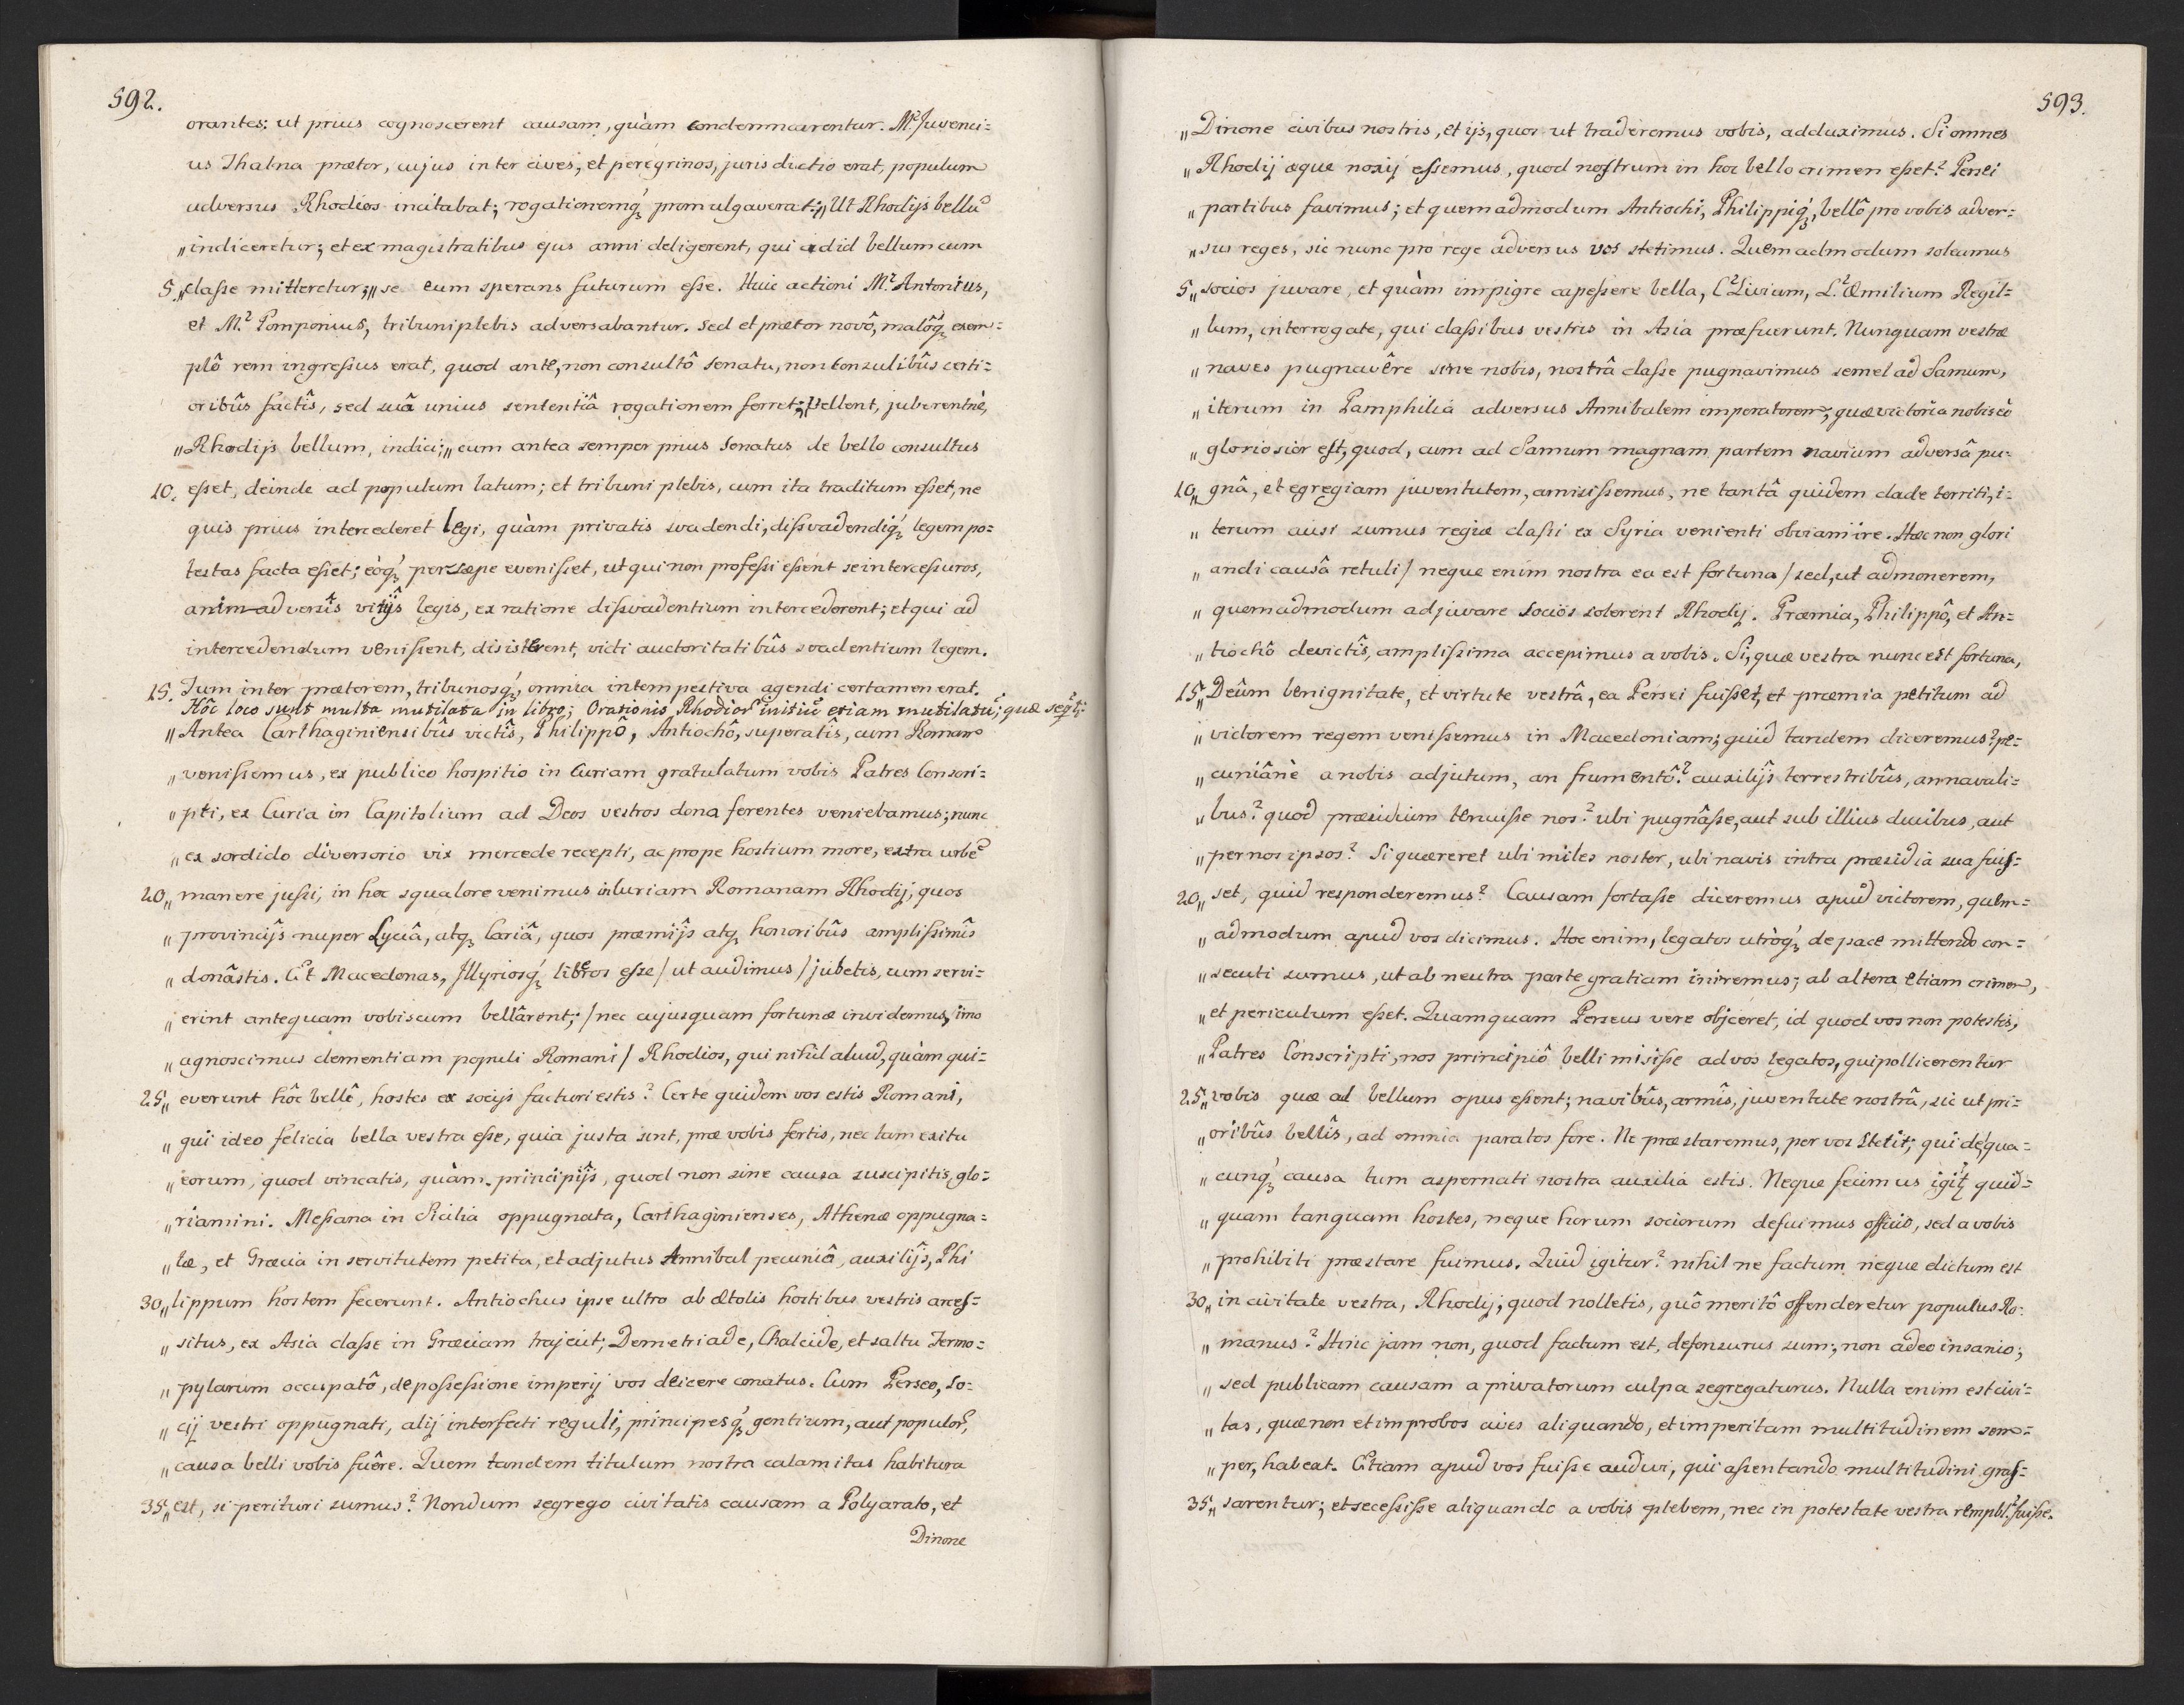 592.
orantes: ut prius cognoscerent causam, quàm condemnarentur. M.ꝰ Juvenci=
us Thalna prætor, cujus inter cives, et peregrinos, juris dictio erat, populum
adversus Rhodios incitabat; rogationemq́ꝫ promulgaverat: „Ut Rhodijs bellũ
„ indiceretur; et ex magistratibus ejus anni deligerent, qui ad id bellum cum
5. „ claſse mitteretur; „ se eum sperans futurum eſse. Huic actioni M.ꝰ Antonius,
et M.ꝰ Pomponius, tribuni plebis adversabantur. sed et prætor novô, malôq́ꝫ exem=
plô rem ingreſsus erat, quod ante, non consultô Senatu, non Consulibûs certi=
oribûs factîs, sed suâ unius sententiâ rogationem ferret; „Vellent, juberentnè,
„ Rhodijs bellum, indici; „ cum antea semper prius Senatus de bello consultus
10. eſset, deinde ad populum latum; et tribuni plebis, cum ita traditum eſset, ne
quis prius intercederet legi, quàm privatis svadendi, diſsvadendiq́ꝫ legem po=
testas facta eſset; eòq́ꝫ persæpe eveniſset, ut qui non profeſsi eſsent se interceſsuros,
animadversîs vitijs legis, ex ratione diſsvadentium intercederent; et qui ad
intercedendum veniſsent, disisterent, victi auctoritatibûs svadentium legem.
15. Tum inter prætorem, tribunosq́ꝫ, omnia intempestiva agendi certamen erat.
Hôc loco sunt multa mutilata in librô; Orationis Rhodior initiũ etiam mutilatũ; quæ seqᵗʳ:
„ Antea Carthaginiensibûs victîs, Philippô, Antiochô, superatîs, cum Romam
„ veniſsemus, ex publico hospitio in Curiam gratulatum vobis Patres Conscri=
„ pti, ex Curia in Capitolium ad Deos vestros dona ferentes veniebamus; nunc
„ ex sordido diversorio vix mercede recepti, ac prope hostium more, extra urbẽ
20. „ manere juſsi, in hoc squalore venimus in Curiam Romanam Rhodij, quos
„ provincijs nuper Lyciâ, atqꝫ Cariâ, quos præmijs atqꝫ honoribûs ampliſsimîs
„ donâstis. Et Macedonas, Jllyriosq́ꝫ liberos eſse / ut audimus / jubetis, cum servi=
„ erint antequam vobiscum bellârent; / nec cujusquam fortunæ invidemus, imo
„ agnoscimus clementiam populi Romani / Rhodios, qui nihil aliud, quàm qui=
25. „ everunt hôc bellô, hostes ex socijs facturi estis? Certe quidem vos estis Romani,
„ qui ideo felicia bella vestra eſse, quia justa sint, præ vobis fertis, nec tam exitu
„ eorum, quod vincatis, quàm principijs, quod non sine causa suscipitis, glo=
„ riamini. Meſsana in Sicilia oppugnata, Carthaginienses, Athenæ oppugna=
„ tæ, et Græcia in servitutem petita, et adjutus Annibal pecuniâ, auxilijs, Phi
30. „ lippum hostem fecerunt. Antiochus ipse ultro ab Ætolis hostibus vestris arceſ=
„ situs, ex Asia claſse in Græciam trajecit; Demetriade, Chalcide, et saltu Termo=
„ pylarum occupatô, de poſseſsione imperij vos deicere conatus. Cum Perseo, So=
„ cij vestri oppugnati, alij interfecti reguli, principesq́ꝫ gentium, aut populor,
„ causa belli vobis fuêre. Quem tandem titulum nostra calamitas habitura
35. „ est, si perituri sumus? Nondum segrego civitatis causam a Polyarato, et
Dinone
593.
„ Dinone civibus nostris, et ijs, quos ut traderemus vobis, adduximus. Si omnes
„ Rhodij æque noxij eſsemus, quod nostrum in hoc bello crimen eſset? Persei
„ partibus favimus; et quemadmodum Antiochi, Philippiq́ꝫ, bellô pro vobis adver=
„ sus reges, sic nunc pro rege adversus vos stetimus. Quemadmodum soleamus
5. „ socios juvare, et quàm impigre capeſsere bella, C.ꝰ Livium, L.ꝰ Æmilium Regil=
„ lum, interrogate, qui claſsibus vestris in Asia præfuerunt. Nunquam vestræ
„ naves pugnavêre sine nobis, nostrâ claſse pugnavimus semel ad Samum,
„ iterum in Pamphilia adversus Annibalem imperatorem; quæ victoria nobis eò
„ gloriosior est, quod, cum ad Samum magnam partem navium adversâ pu=
10. „ gnâ, et egregiam juventutem, amisiſsemus, ne tantâ quidem clade territi, i=
„ terum ausi sumus regiæ claſsi ex Syria venienti obviam ire. Hæc non glori
„ andi causâ retuli / neque enim nostra ea est fortuna / sed, ut admonerem,
„ quemadmodum adjuvare socios solerent Rhodij. Præmia, Philippô, et An=
„ tiochô devictîs, ampliſsima accepimus a vobis. Si, quæ vestra nunc est fortuna,
15. „ Deûm benignitate, et virtute vestrâ, ea Persei fuiſset, et præmia petitum ad
„ victorem regem veniſsemus in Macedoniam; quid tandem diceremus? pe=
„ cuniânè a nobis adjutum, an frumentô? auxilijs terrestribûs, an navali=
„ bus? quod præsidium tenuiſse nos? ubi pugnâſse, aut sub illius ducibus, aut
„ per nos ipsos? Si quæreret ubi miles noster, ubi navis intra præsidia sua fuiſ=
20. „ set, quid responderemus? Causam fortaſse diceremus apud victorem, quem=
„ admodum apud vos dicimus. Hoc enim, legatos utròq́ꝫ de pace mittendo con=
„ secuti sumus, ut ab neutra parte gratiam iniremus; ab altera etiam crimen,
„ et periculum eſset. Quamquam Perseus vere objceret, id quod vos non potestis,
„ Patres Conscripti, nos principiô belli misiſse ad vos legatos, qui pollicerentur
25. „ vobis quæ ad bellum opus eſsent; navibûs, armîs, juventute nostrâ, sic ut pri=
„ oribûs bellîs, ad omnia paratos fore. Ne præstaremus, per vos stetit; qui de qua=
„ cunq́ꝫ causa tum aspernati nostra auxilia estis. Neque fecimus igiᵗʳ quid=
„ quam tanquam hostes, neque horum sociorum defuimus officio, sed a vobis
„ prohibiti præstare fuimus. Quid igitur? nihil ne factum neque dictum est
30. „ in civitate vestra, Rhodij, quod nolletis, quô meritô offenderetur populus Ro=
„ manus? Hinc jam non, quod factum est, defensurus sum; non adeo insanio;
„ sed publicam causam a privatorum culpa segregaturus. Nulla enim est civi=
„ tas, quæ non et improbos cives aliquando, et imperitam multitudinem sem=
„ per, habeat. Etiam apud vos fuiſse audivi, qui aſsentando multitudini graſ=
35. „ sarentur; et seceſsiſse aliquando a vobis plebem, nec in potestate vestra rempbl.ꝰ fuiſse.